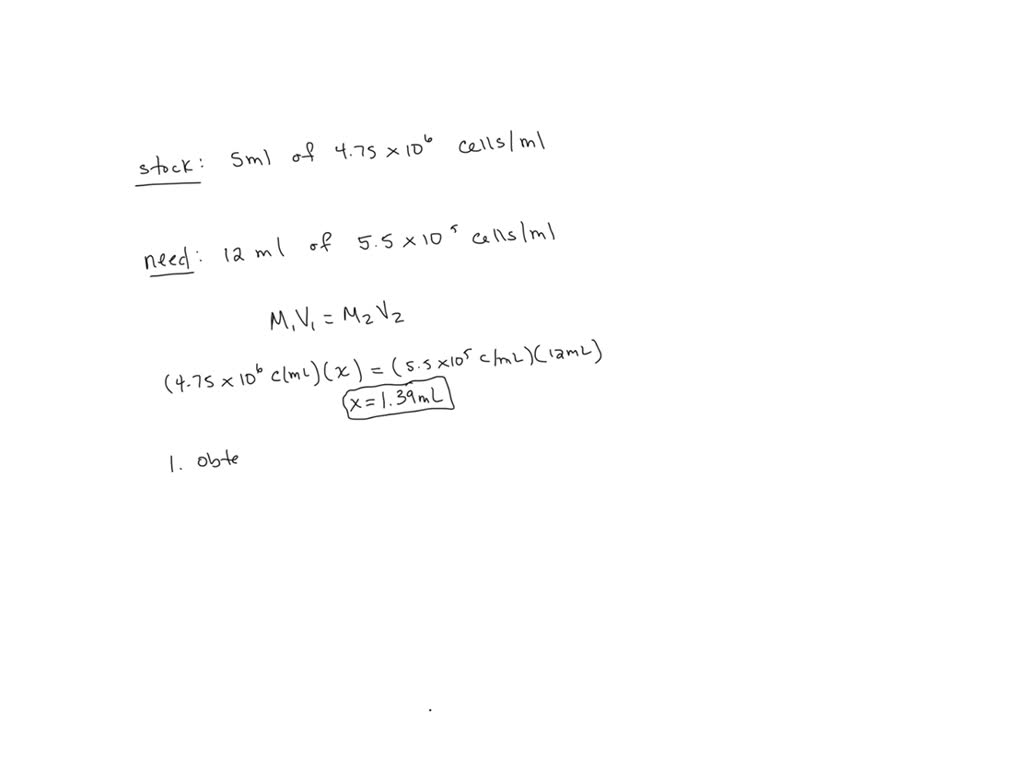 stock: 5ml of 4.75 × 10⁶ cells/ml
need: 12 ml of 5.5 × 10⁵ cells/ml
M₁V₁ = M₂V₂
(4.75 × 10⁶ c/mL)(x) = (5.5 × 10⁵ c/mL)(12mL)
x = 1.39mL
1. obte